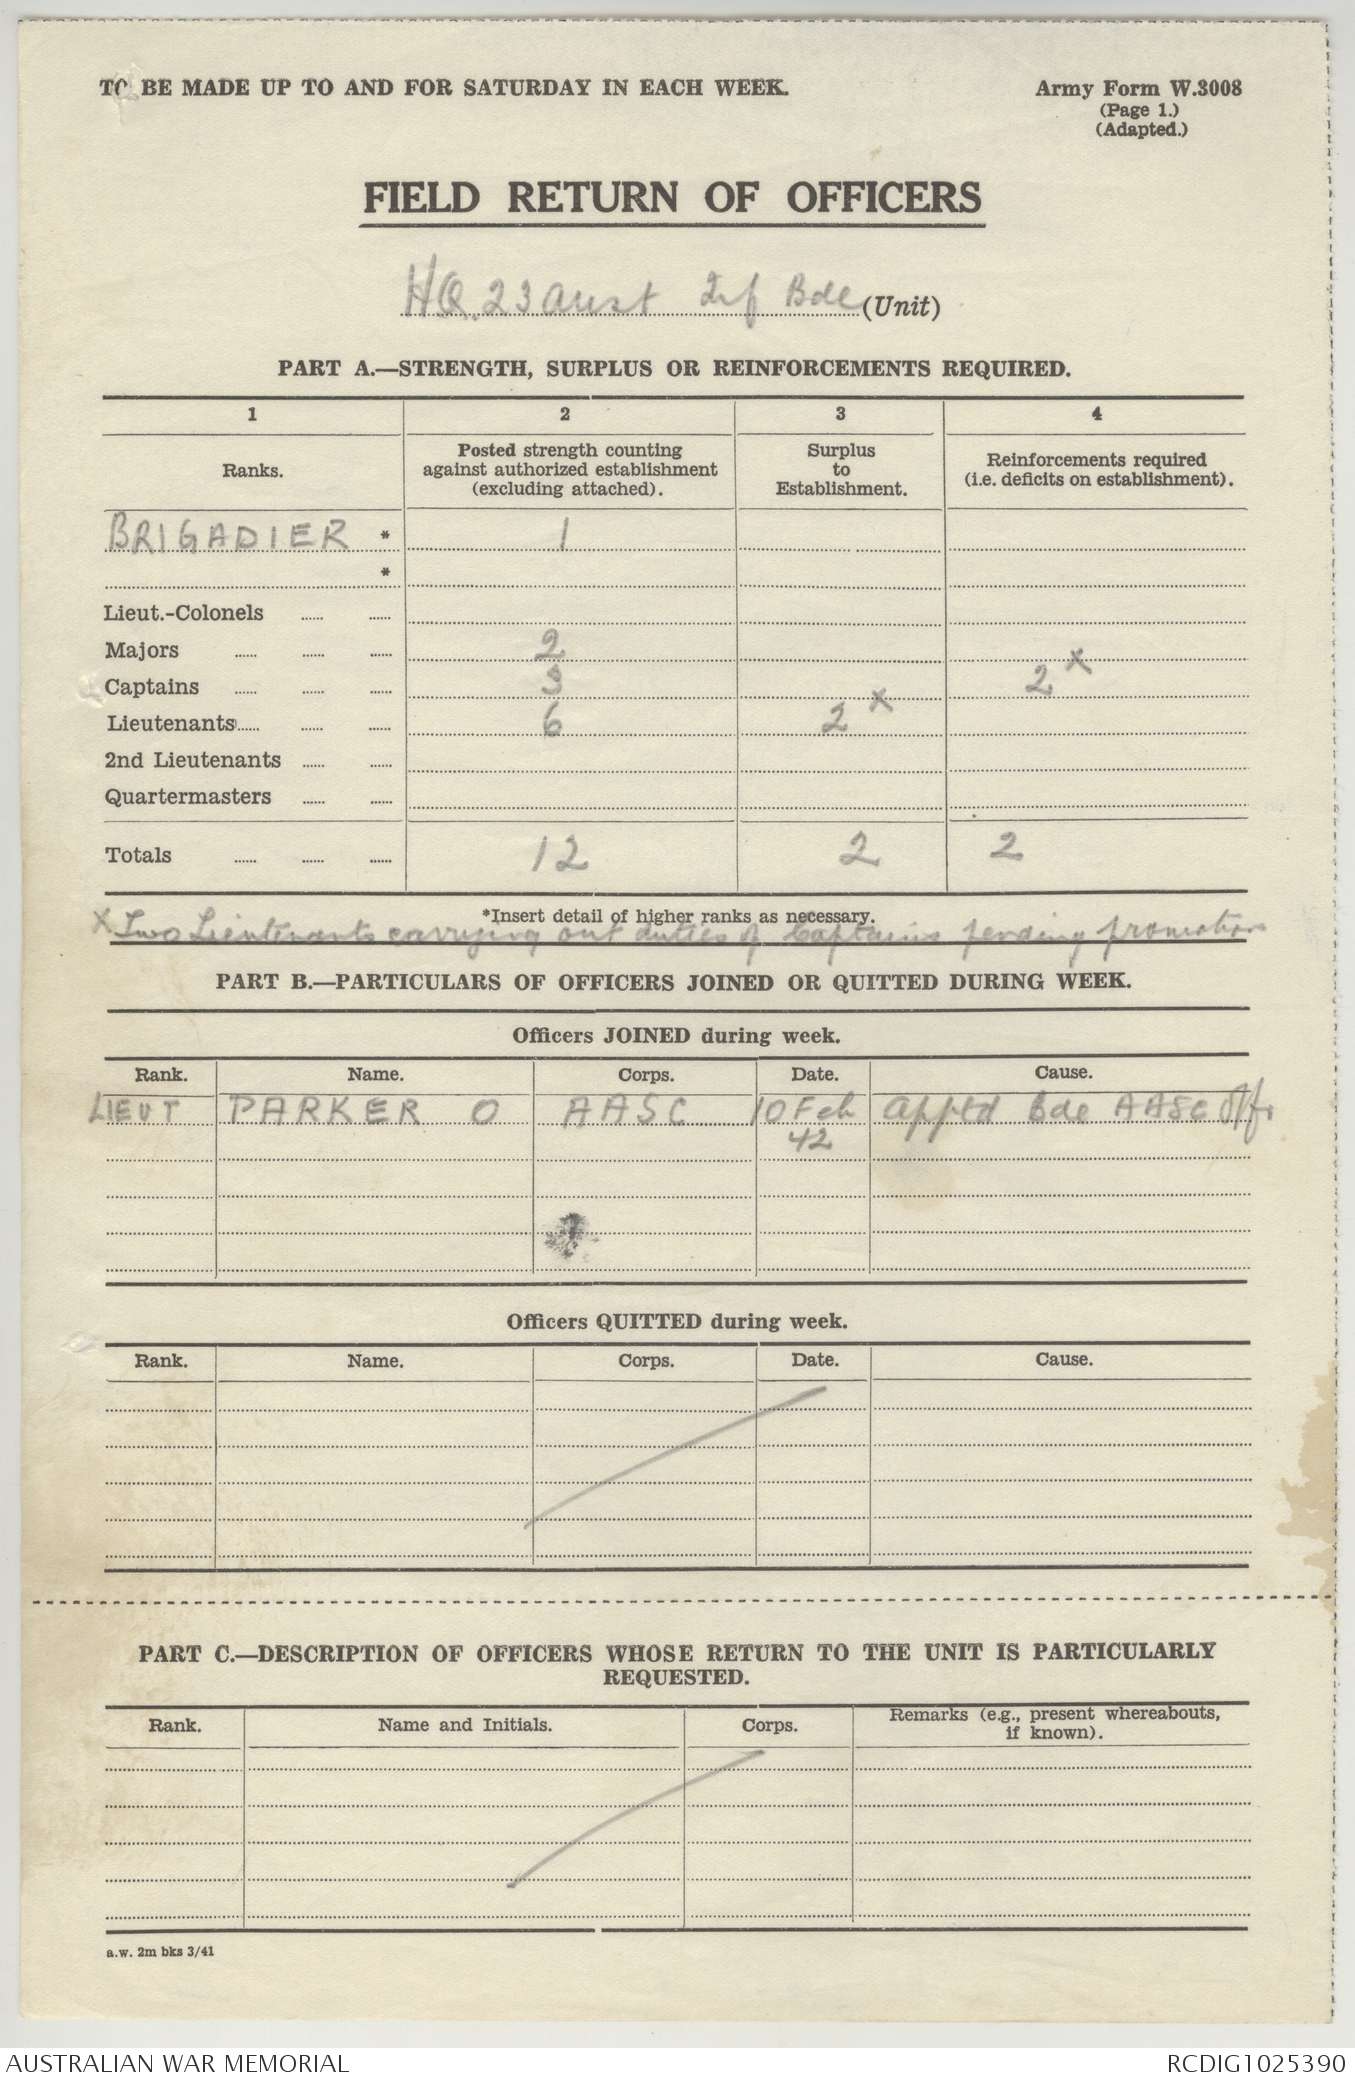 TO BE MADE UP TO AND FOR SATURDAY IN EACH WEEK.
Army Form W.3008
(Page 1.)
(Adapted.)
FIELD RETURN OF OFFICERS
HQ. 23 Aust Inf Bde (Unit)
PART A.—STRENGTH, SURPLUS OR REINFORCEMENTS REQUIRED.
1 2 3 4
Ranks. Posted strength counting against authorized establishment (excluding attached). Surplus to Establishment. Reinforcements required (i.e. deficits on establishment).
BRIGADIER * 1
*
Lieut.-Colonels ...... ......
Majors ...... ...... ...... 2
Captains ...... ...... ...... 3 2 x
Lieutenants ...... ...... ...... 6 2 x
2nd Lieutenants ...... ......
Quartermasters ...... ......
Totals ...... ...... ...... 12 2 2
*Insert detail of higher ranks as necessary.
x Two Lieutenants carrying out duties of Captains pending promotion
PART B.—PARTICULARS OF OFFICERS JOINED OR QUITTED DURING WEEK.
Officers JOINED during week.
Rank. Name. Corps. Date. Cause.
LIEUT PARKER O AASC 10 Feb 42 Apptd Bde AASC Offr
Officers QUITTED during week.
Rank. Name. Corps. Date. Cause.
PART C.—DESCRIPTION OF OFFICERS WHOSE RETURN TO THE UNIT IS PARTICULARLY
REQUESTED.
Rank. Name and Initials. Corps. Remarks (e.g., present whereabouts, if known).
a.w. 2m bks 3/41
AUSTRALIAN WAR MEMORIAL
RCDIG1025390